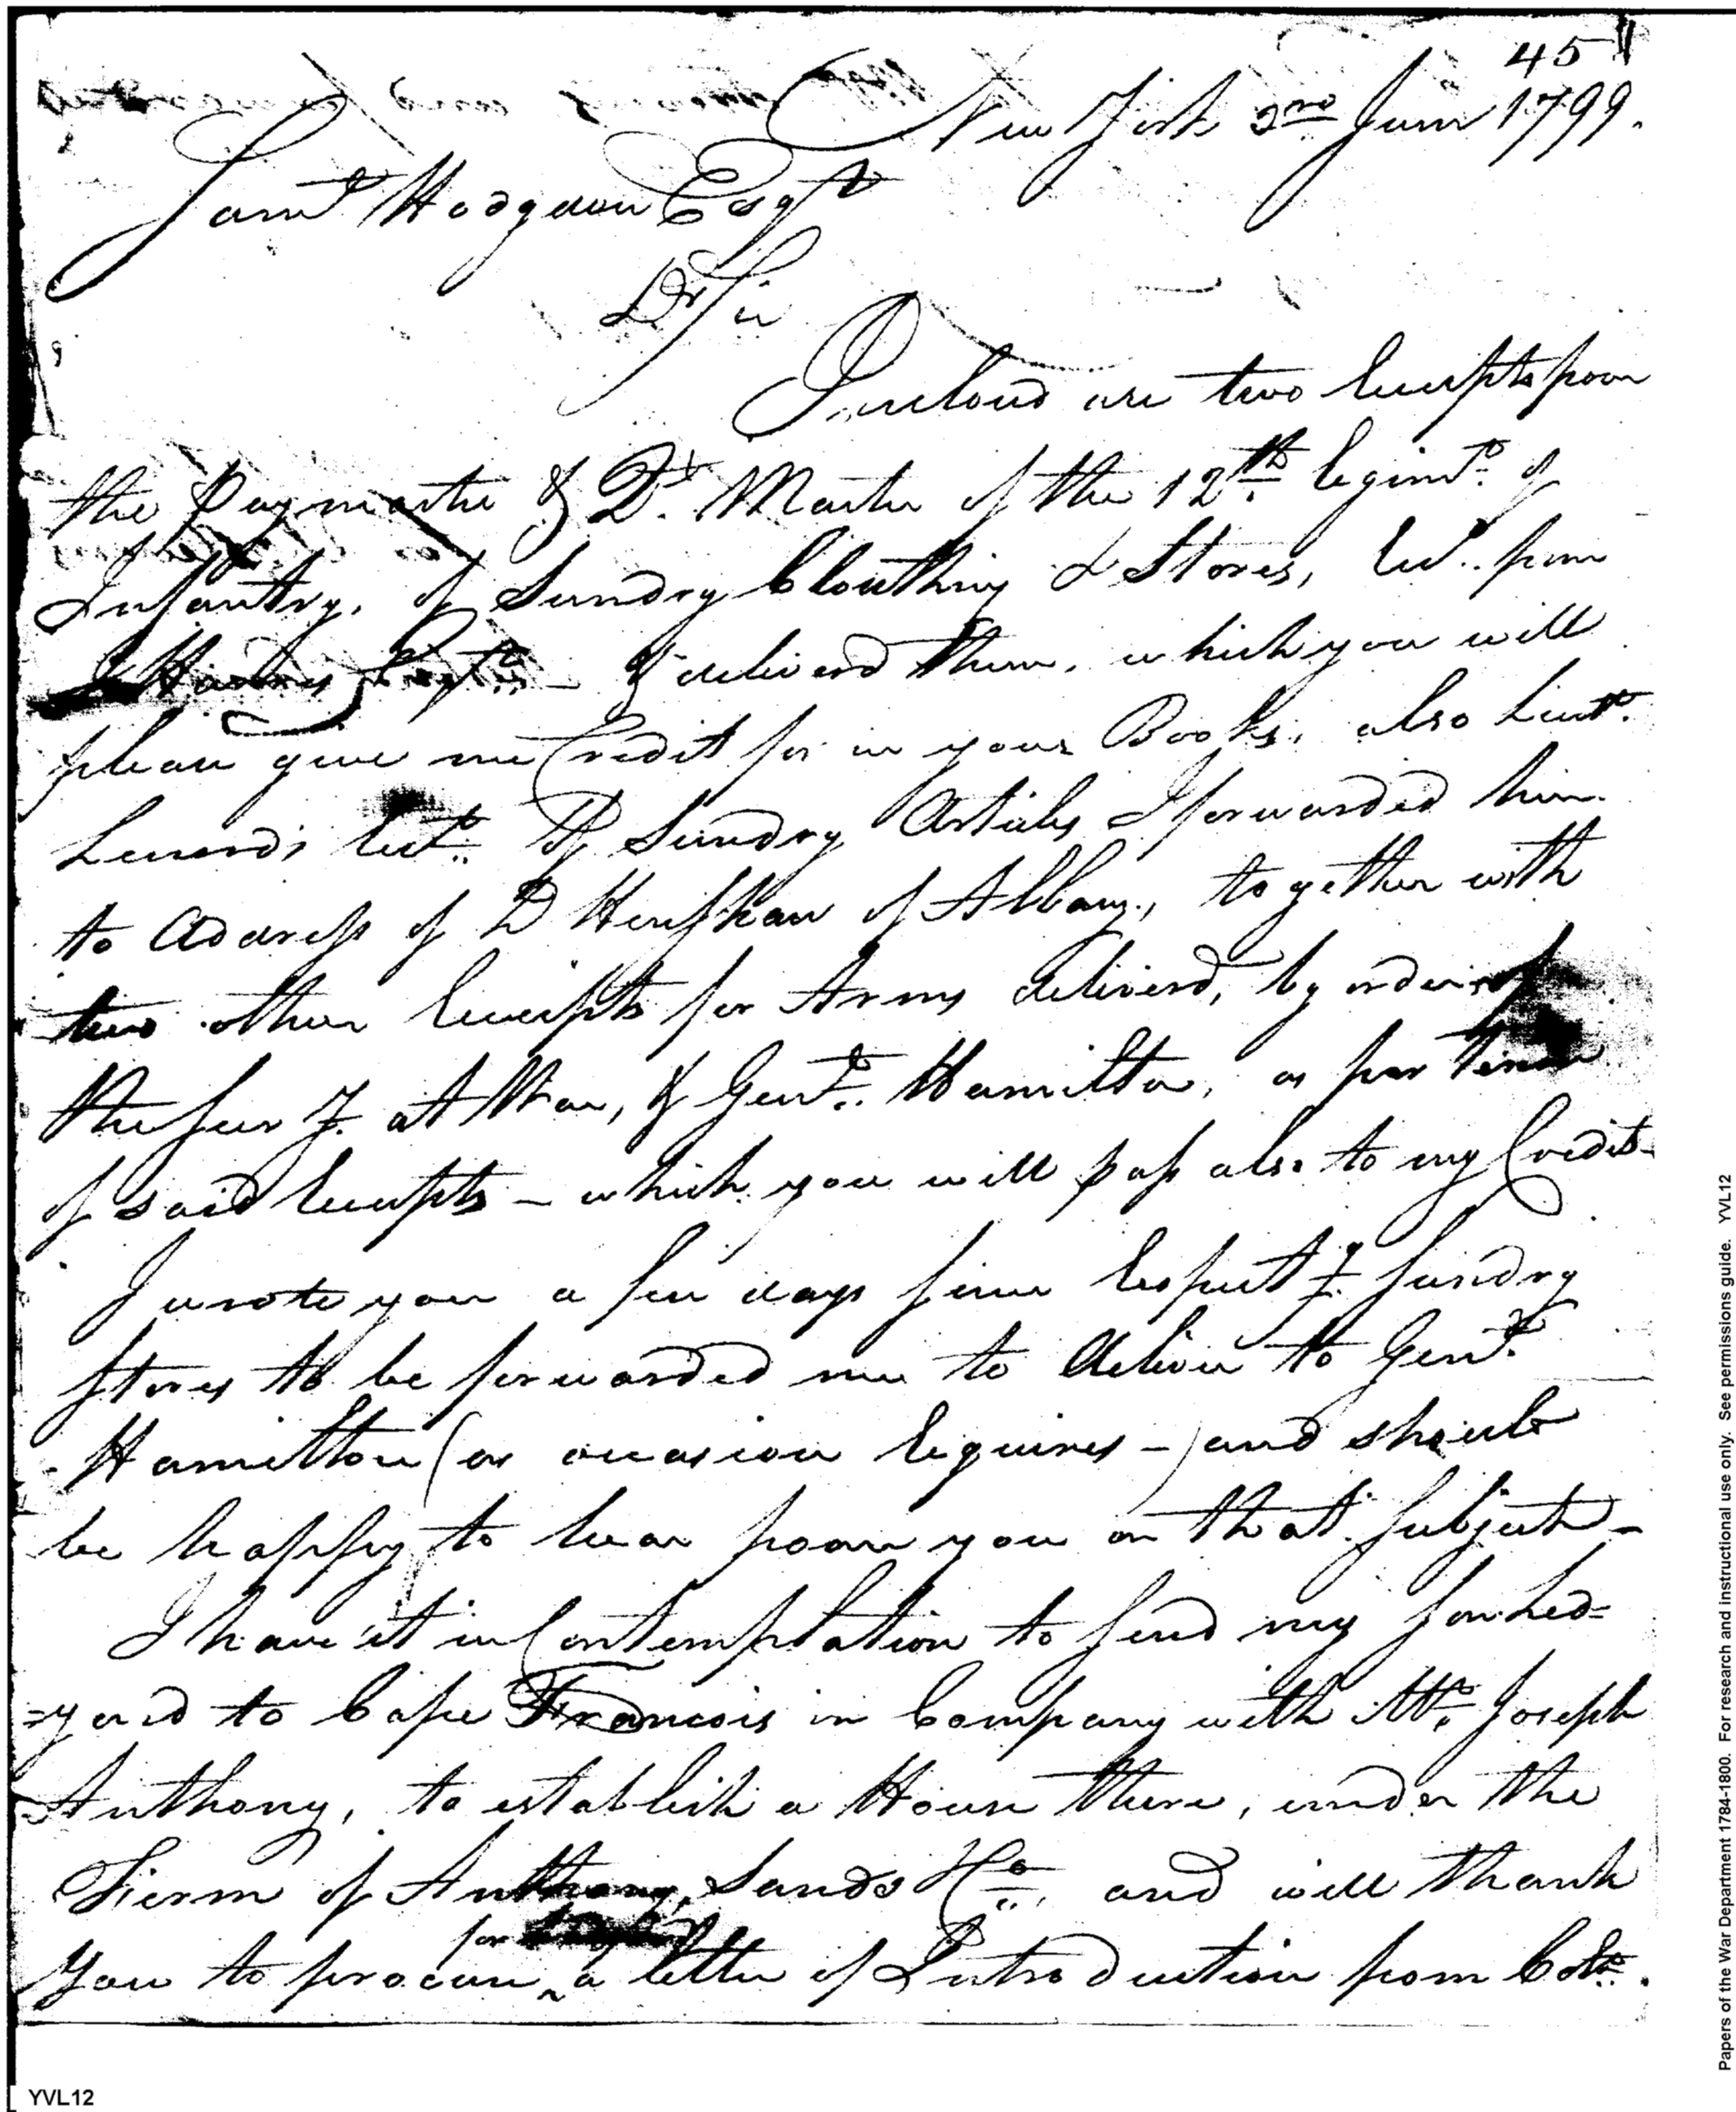 45
New York 2nd June 1799.
Saml Hodgdon Esqr
Dr Sir
Inclosd are two Receipts from
the Paymaster & Qr. Master of the 12th Regimt. of
Infantry, of Sundry Clouthing & Stores, Recd. from
J Harris Esqr. — & deliverd them, which you will
please give me Credit for in your Books, also Lieut.
Leonards Rect. of Sundry Articles I forwarded him
to Address of D Henshaw of Albany, together with
two other Receipts for Arms deliverd, by order of
the Secr'y. at War, & Genl. Hamilton, as per Tenor
of said Receipts — which you will pass also to my Credit —
I wrote you a few days since Respect'g. sundry
stores to be forwarded me to deliver to Genl.
Hamilton (as occasion Requires —) and should
be happy to hear from you on that subject —
I have it in Contemplation to send my son Led=
=yard to Cape Francois in Company with Mr. Joseph
Anthony, to establish a House there, under the
Fierm of Anthony, Sands & Co. and will thank
for
You to procure a letter of Introduction from Colo.
YVL12
Papers of the War Department 1784-1800. For research and instructional use only. See permissions guide. YVL12